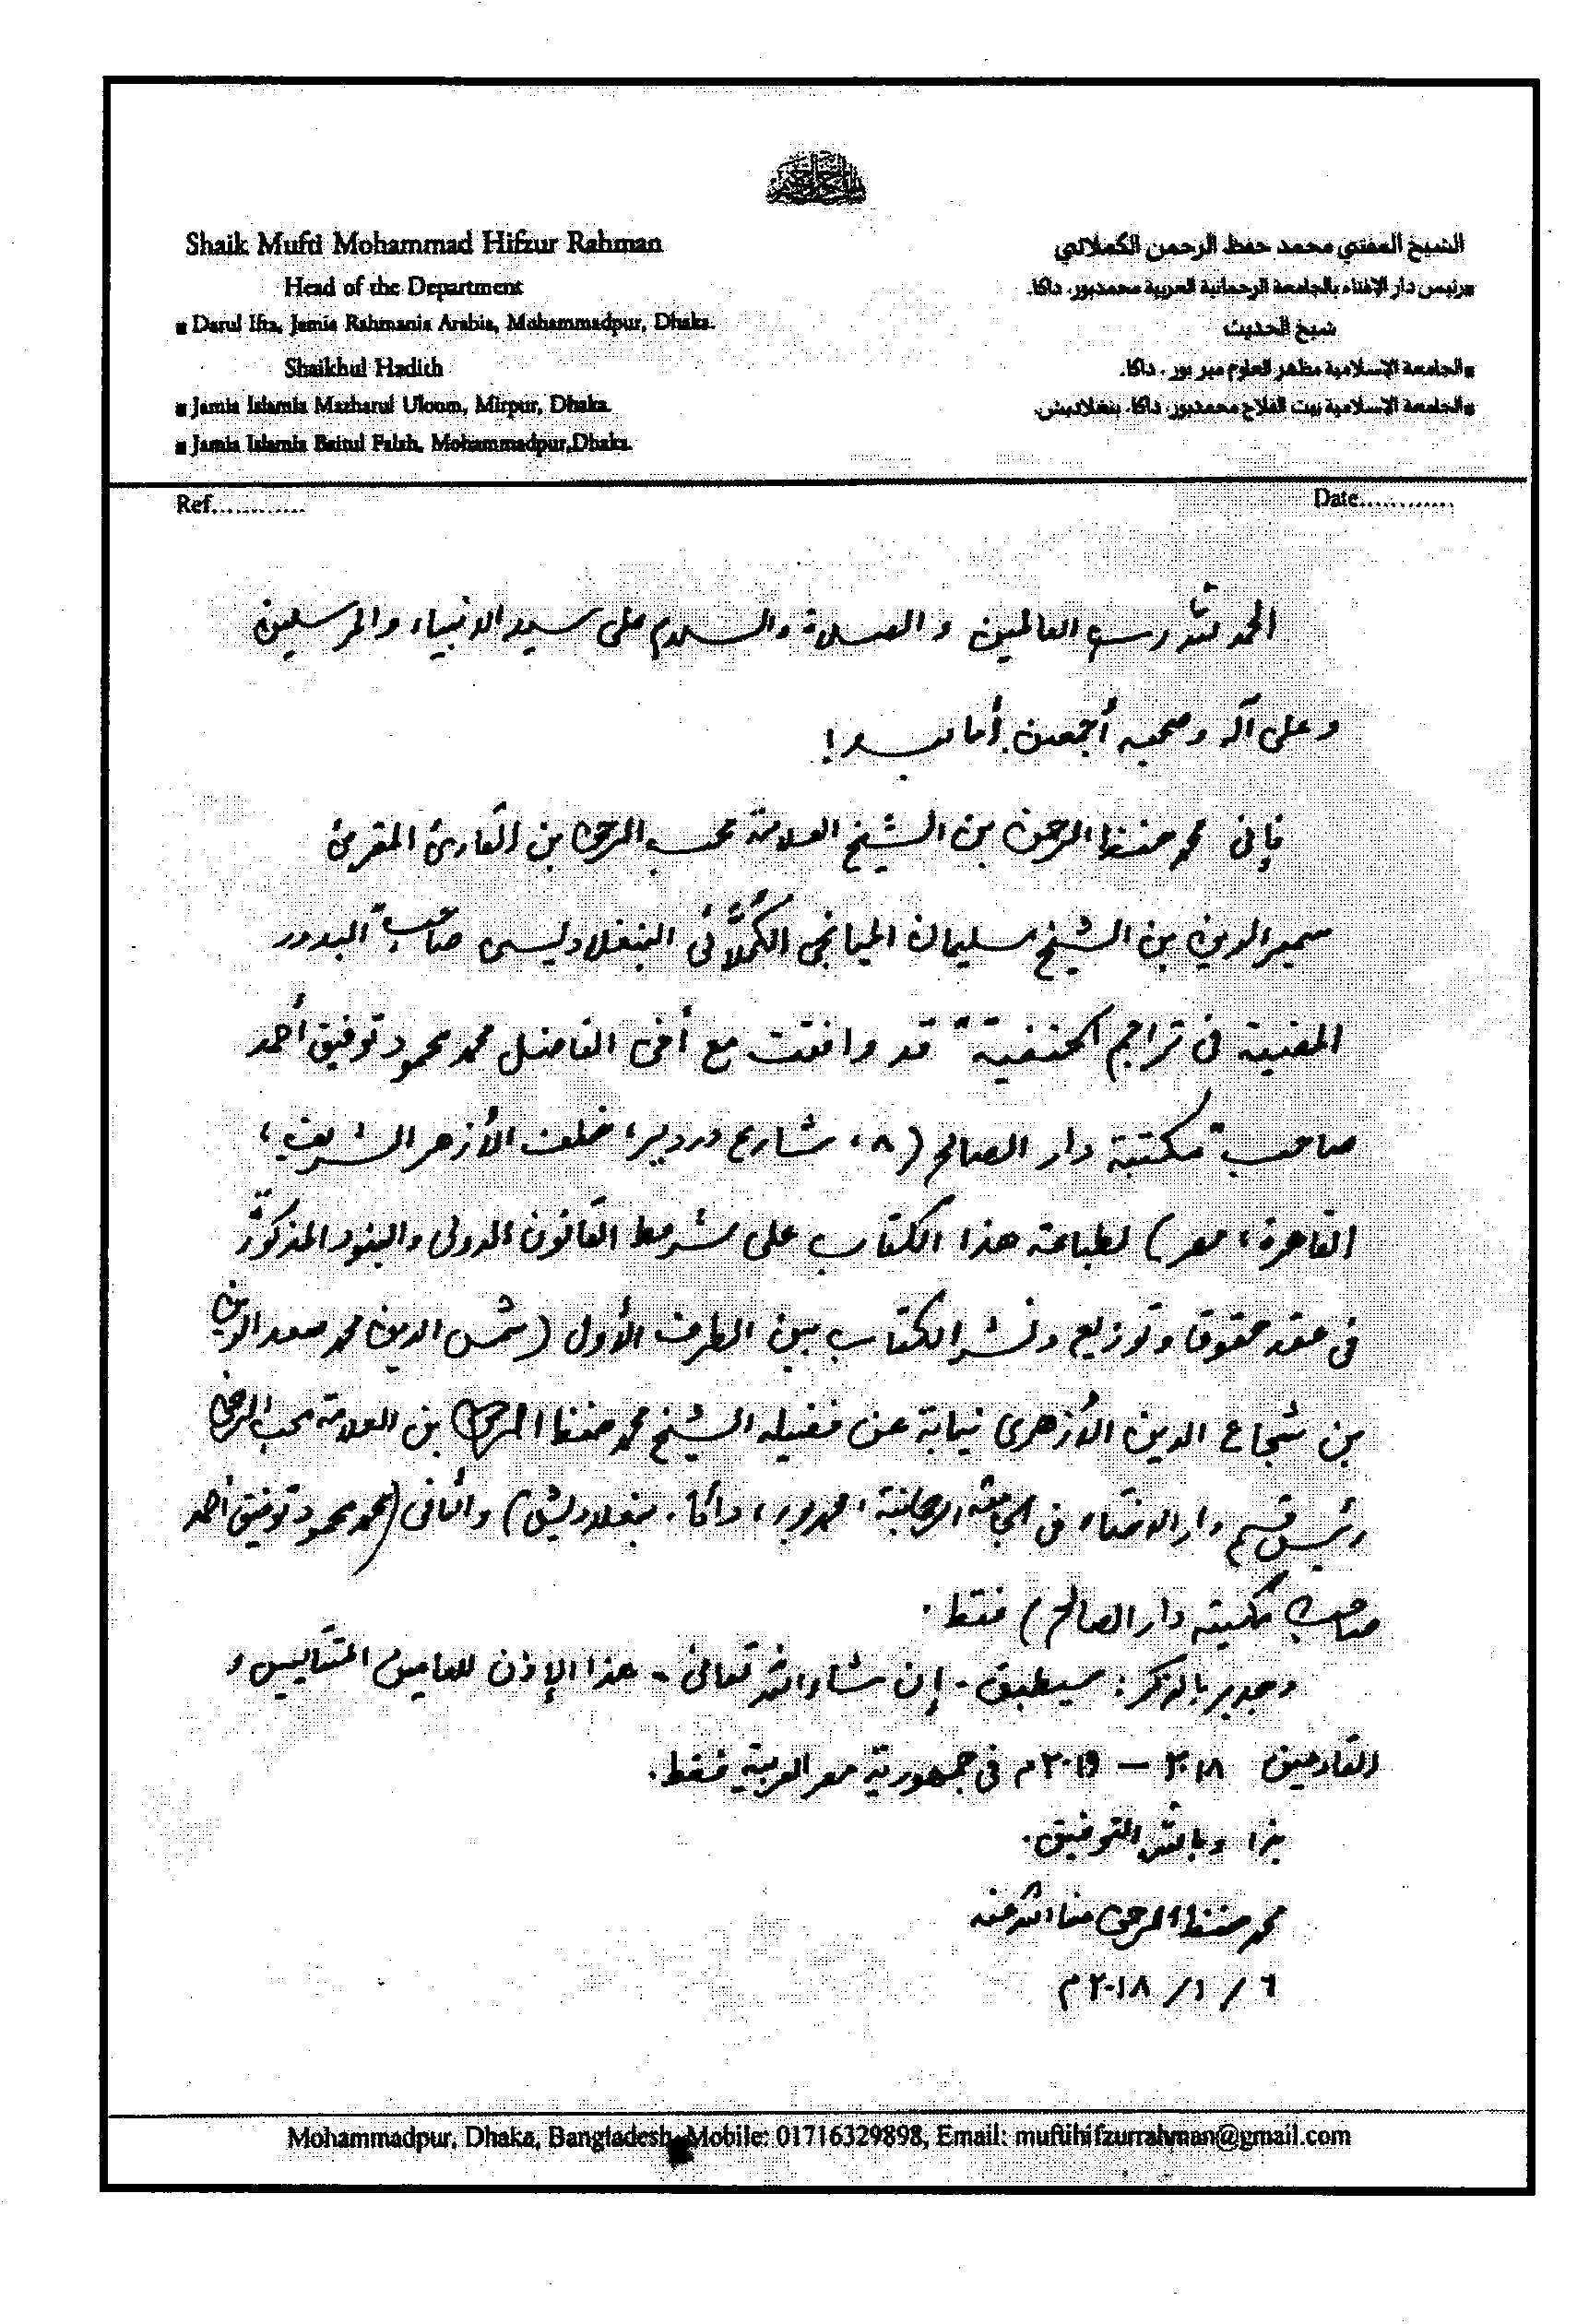 Shaik Mufti Mohammad Hifzur Rahman
Head of the Department
■ Darul Ifta, Jamia Rahmania Arabia, Mohammadpur, Dhaka.
Shaikhul Hadith
■ Jamia Islamia Mazharul Uloom, Mirpur, Dhaka.
■ Jamia Islamia Baitul Falah, Mohammadpur,Dhaka.
الشيخ المفتي محمد حفظ الرحمن الكملائي
■رئيس دار الإفتاء بالجامعة الرحمانية العربية محمدبور، داكا.
شيخ الحديث
■الجامعة الإسلامية مظهر العلوم مير بور، داكا.
■الجامعة الإسلامية بيت الفلاح محمدبور، داكا، بنغلاديش.
Ref............
Date............
الحمد لله رب العالمين و الصلاة والسلام على سيد الأنبياء والمرسلين
وعلى آله وصحبه أجمعين. أما بعد!
فإني محمد حفظ الرحمن بن الشيخ العلامة محب الرحمن بن القارئ المقرئ
سمير الدين بن الشيخ سليمان الميانجي الكُمِلّائي البنغلاديسى صاحب "البدور
المضية في تراجم الحنفية" قد وافقت مع أخي الفاضل محمد محمود توفيق أحمد
صاحب "مكتبة دار الصالح (٨، شارع دردير، خلف الأزهر الشريف،
القاهرة، مصر) لطباعة هذا الكتاب على شرط القانون الدولي والبنود المذكورة
في عقد حقوق وتوزيع ونشر الكتاب بين الطرف الأول (شمس الدين محمد سعد الدين
بن شجاع الدين الأزهري نيابة عن فضيلة الشيخ محمد حفظ الرحمن بن العلامة محب الرحمن
رئيس قسم دار الافتاء في الجامعة الرحمانية، محمدبور، داكا، بنغلاديش) والثاني (محمد محمود توفيق أحمد
صاحب مكتبة دار الصالح) فقط.
وجدير بالذكر: سيطبق - إن شاء الله تعالى - هذا الإذن للعامين المتتاليين و
القادمين ٢٠١٨ – ٢٠١٩م في جمهورية مصر العربية فقط.
هذا وبالله التوفيق.
محمد حفظ الرحمن عفا الله عنه
٦ / ١ / ٢٠١٨م
Mohammadpur, Dhaka, Bangladesh, Mobile: 01716329898, Email: muftihifzurrahman@gmail.com